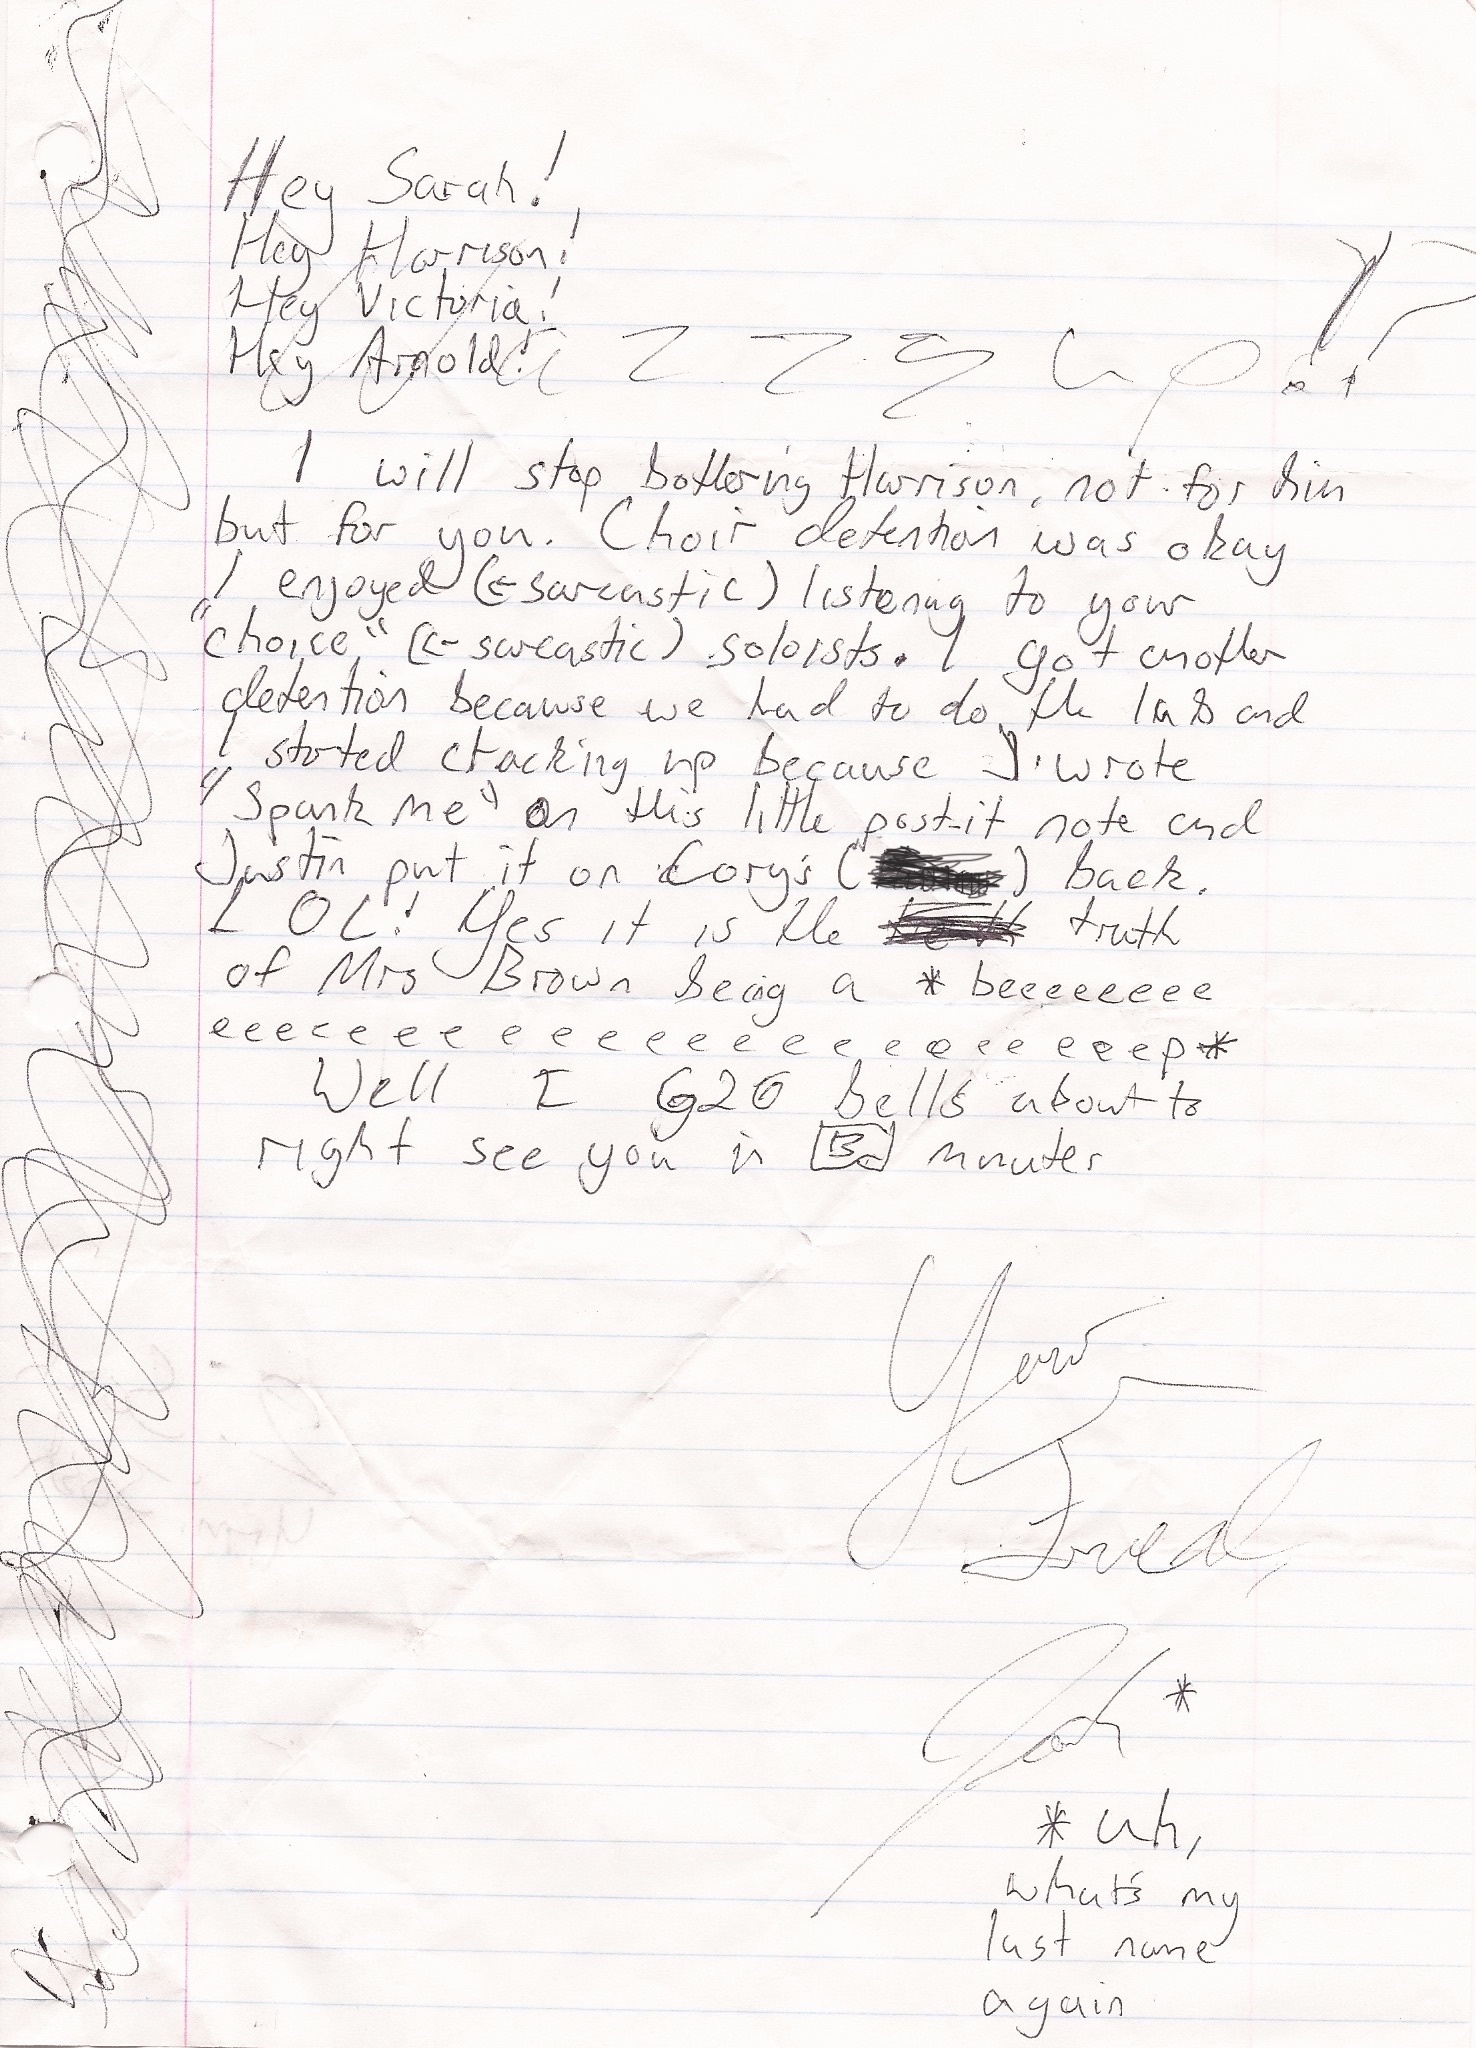 Hey Sarah!
Hey Harrison!
Hey Victoria!
Hey Arnold!
I will stop bothering Harrison, not for him
but for you. Choir detention was okay
I enjoyed (← sarcastic) listening to your
"choice" (← sarcastic) soloists. I got another
detention because we had to do the lab and
I started cracking up because I wrote
"Spank me" on this little post-it note and
Justin put it on Cory's ( ) back.
LOL! Yes it is the truth
of Mrs Brown being a * beeeeeeee
eeeeeeeeeeeeeeeeeeeeeep*
Well I G2G bells about to
right see you in 3 minutes
Your
Friend,
*
* uh,
what's my
last name
again